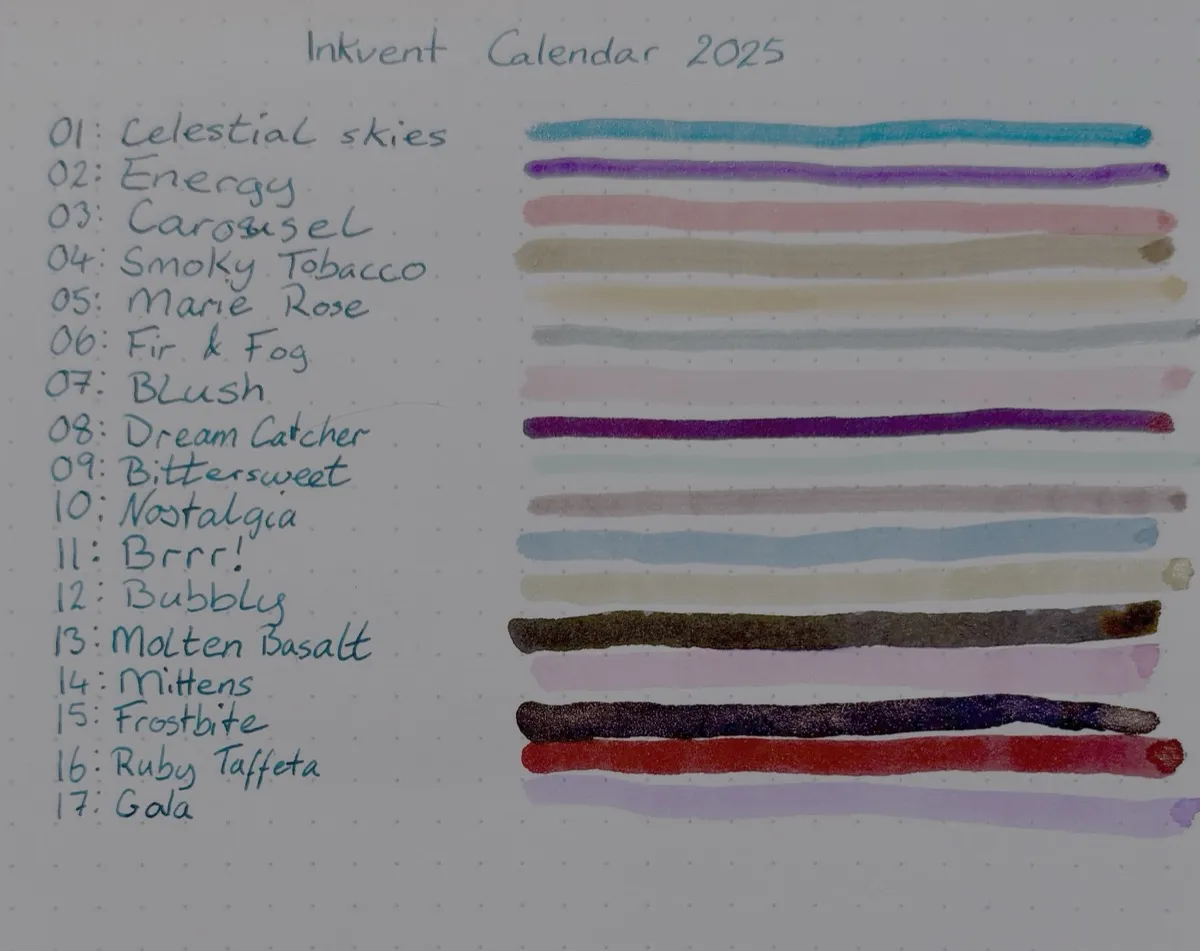 Inkvent Calendar 2025
01: Celestial skies
02: Energy
03: Carousel
04: Smoky Tobacco
05: Marie Rose
06: Fir & Fog
07: Blush
08: Dream Catcher
09: Bittersweet
10: Nostalgia
11: Brrr!
12: Bubbly
13: Molten Basalt
14: Mittens
15: Frostbite
16: Ruby Taffeta
17: Gala